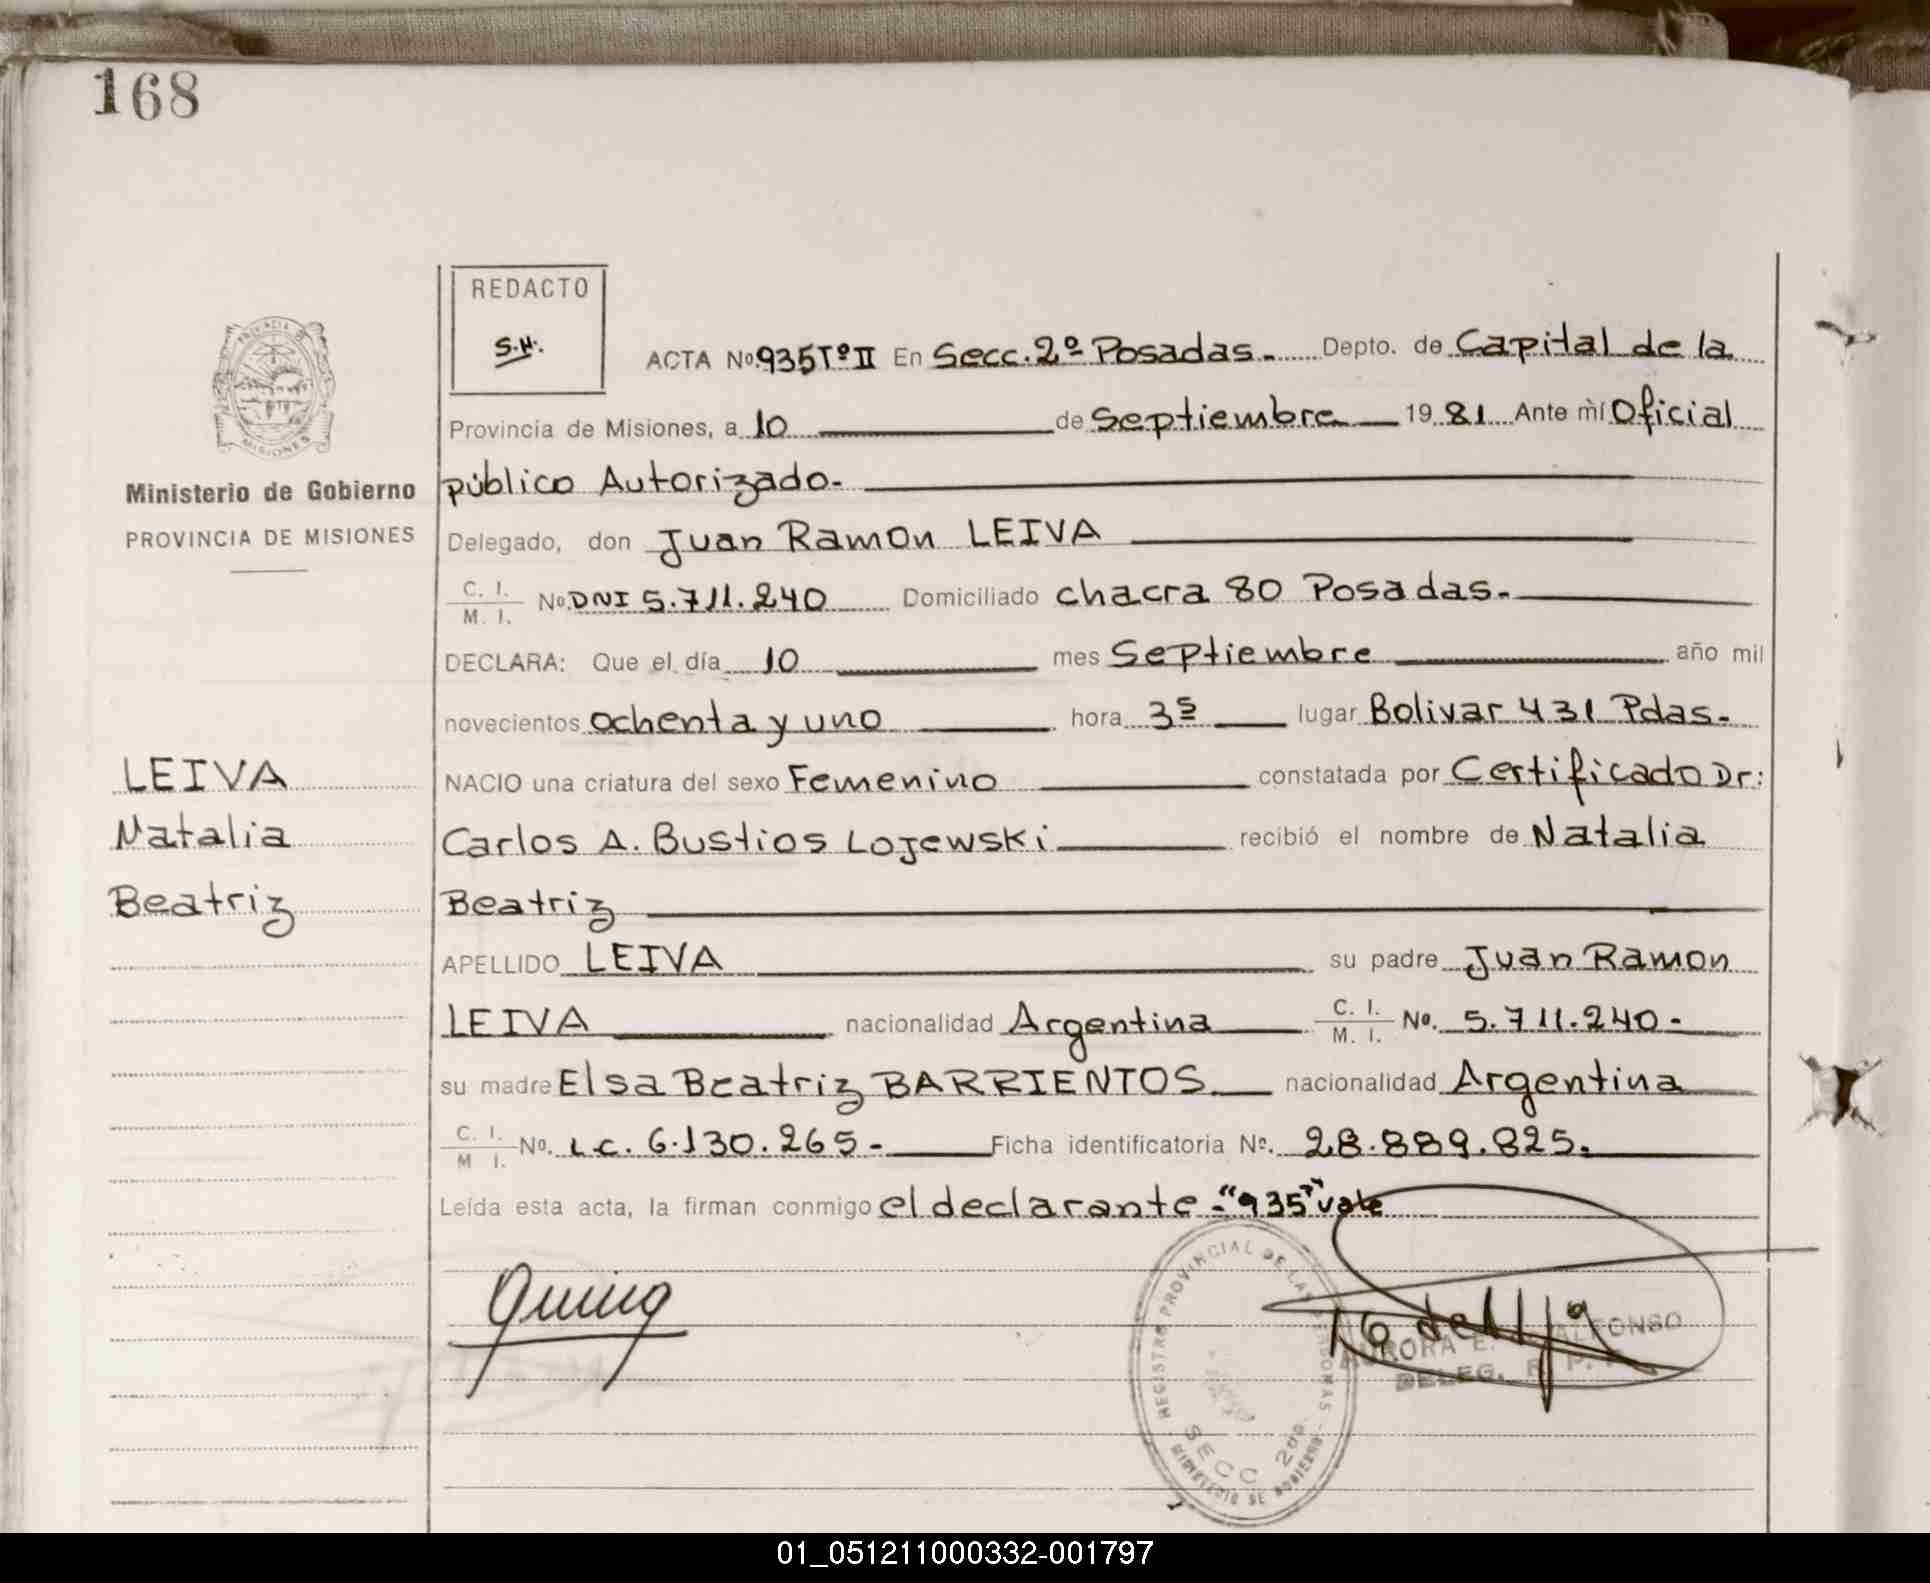 168
REDACTO
S.H.
ACTA No. 935 Tº II En Secc. 2º Posadas. Depto. de Capital de la
Provincia de Misiones, a 10 de Septiembre 19 81 Ante mí Oficial
público Autorizado.
Ministerio de Gobierno
PROVINCIA DE MISIONES
Delegado, don Juan Ramon LEIVA
C. I. / M. I. No. DNI 5.711.240 Domiciliado chacra 80 Posadas.
DECLARA: Que el día 10 mes Septiembre año mil
novecientos ochenta y uno hora 3⁵ lugar Bolivar 431 Pdas.
NACIO una criatura del sexo Femenino constatada por Certificado Dr:
Carlos A. Bustios Lojewski recibió el nombre de Natalia
Beatriz
LEIVA
Natalia
Beatriz
APELLIDO LEIVA su padre Juan Ramon
LEIVA nacionalidad Argentina C. I. / M. I. No. 5.711.240-
su madre Elsa Beatriz BARRIENTOS nacionalidad Argentina
C. I. / M I. No. L.C. 6.130.265- Ficha identificatoria Nº. 28.889.825.
Leída esta acta, la firman conmigo el declarante - "935" vale
REGISTRO PROVINCIAL DE LAS PERSONAS
SECC 2da.
MINISTERIO DE GOBIERNO
AURORA E. ALFONSO
DELEG. R. P.
01_051211000332-001797